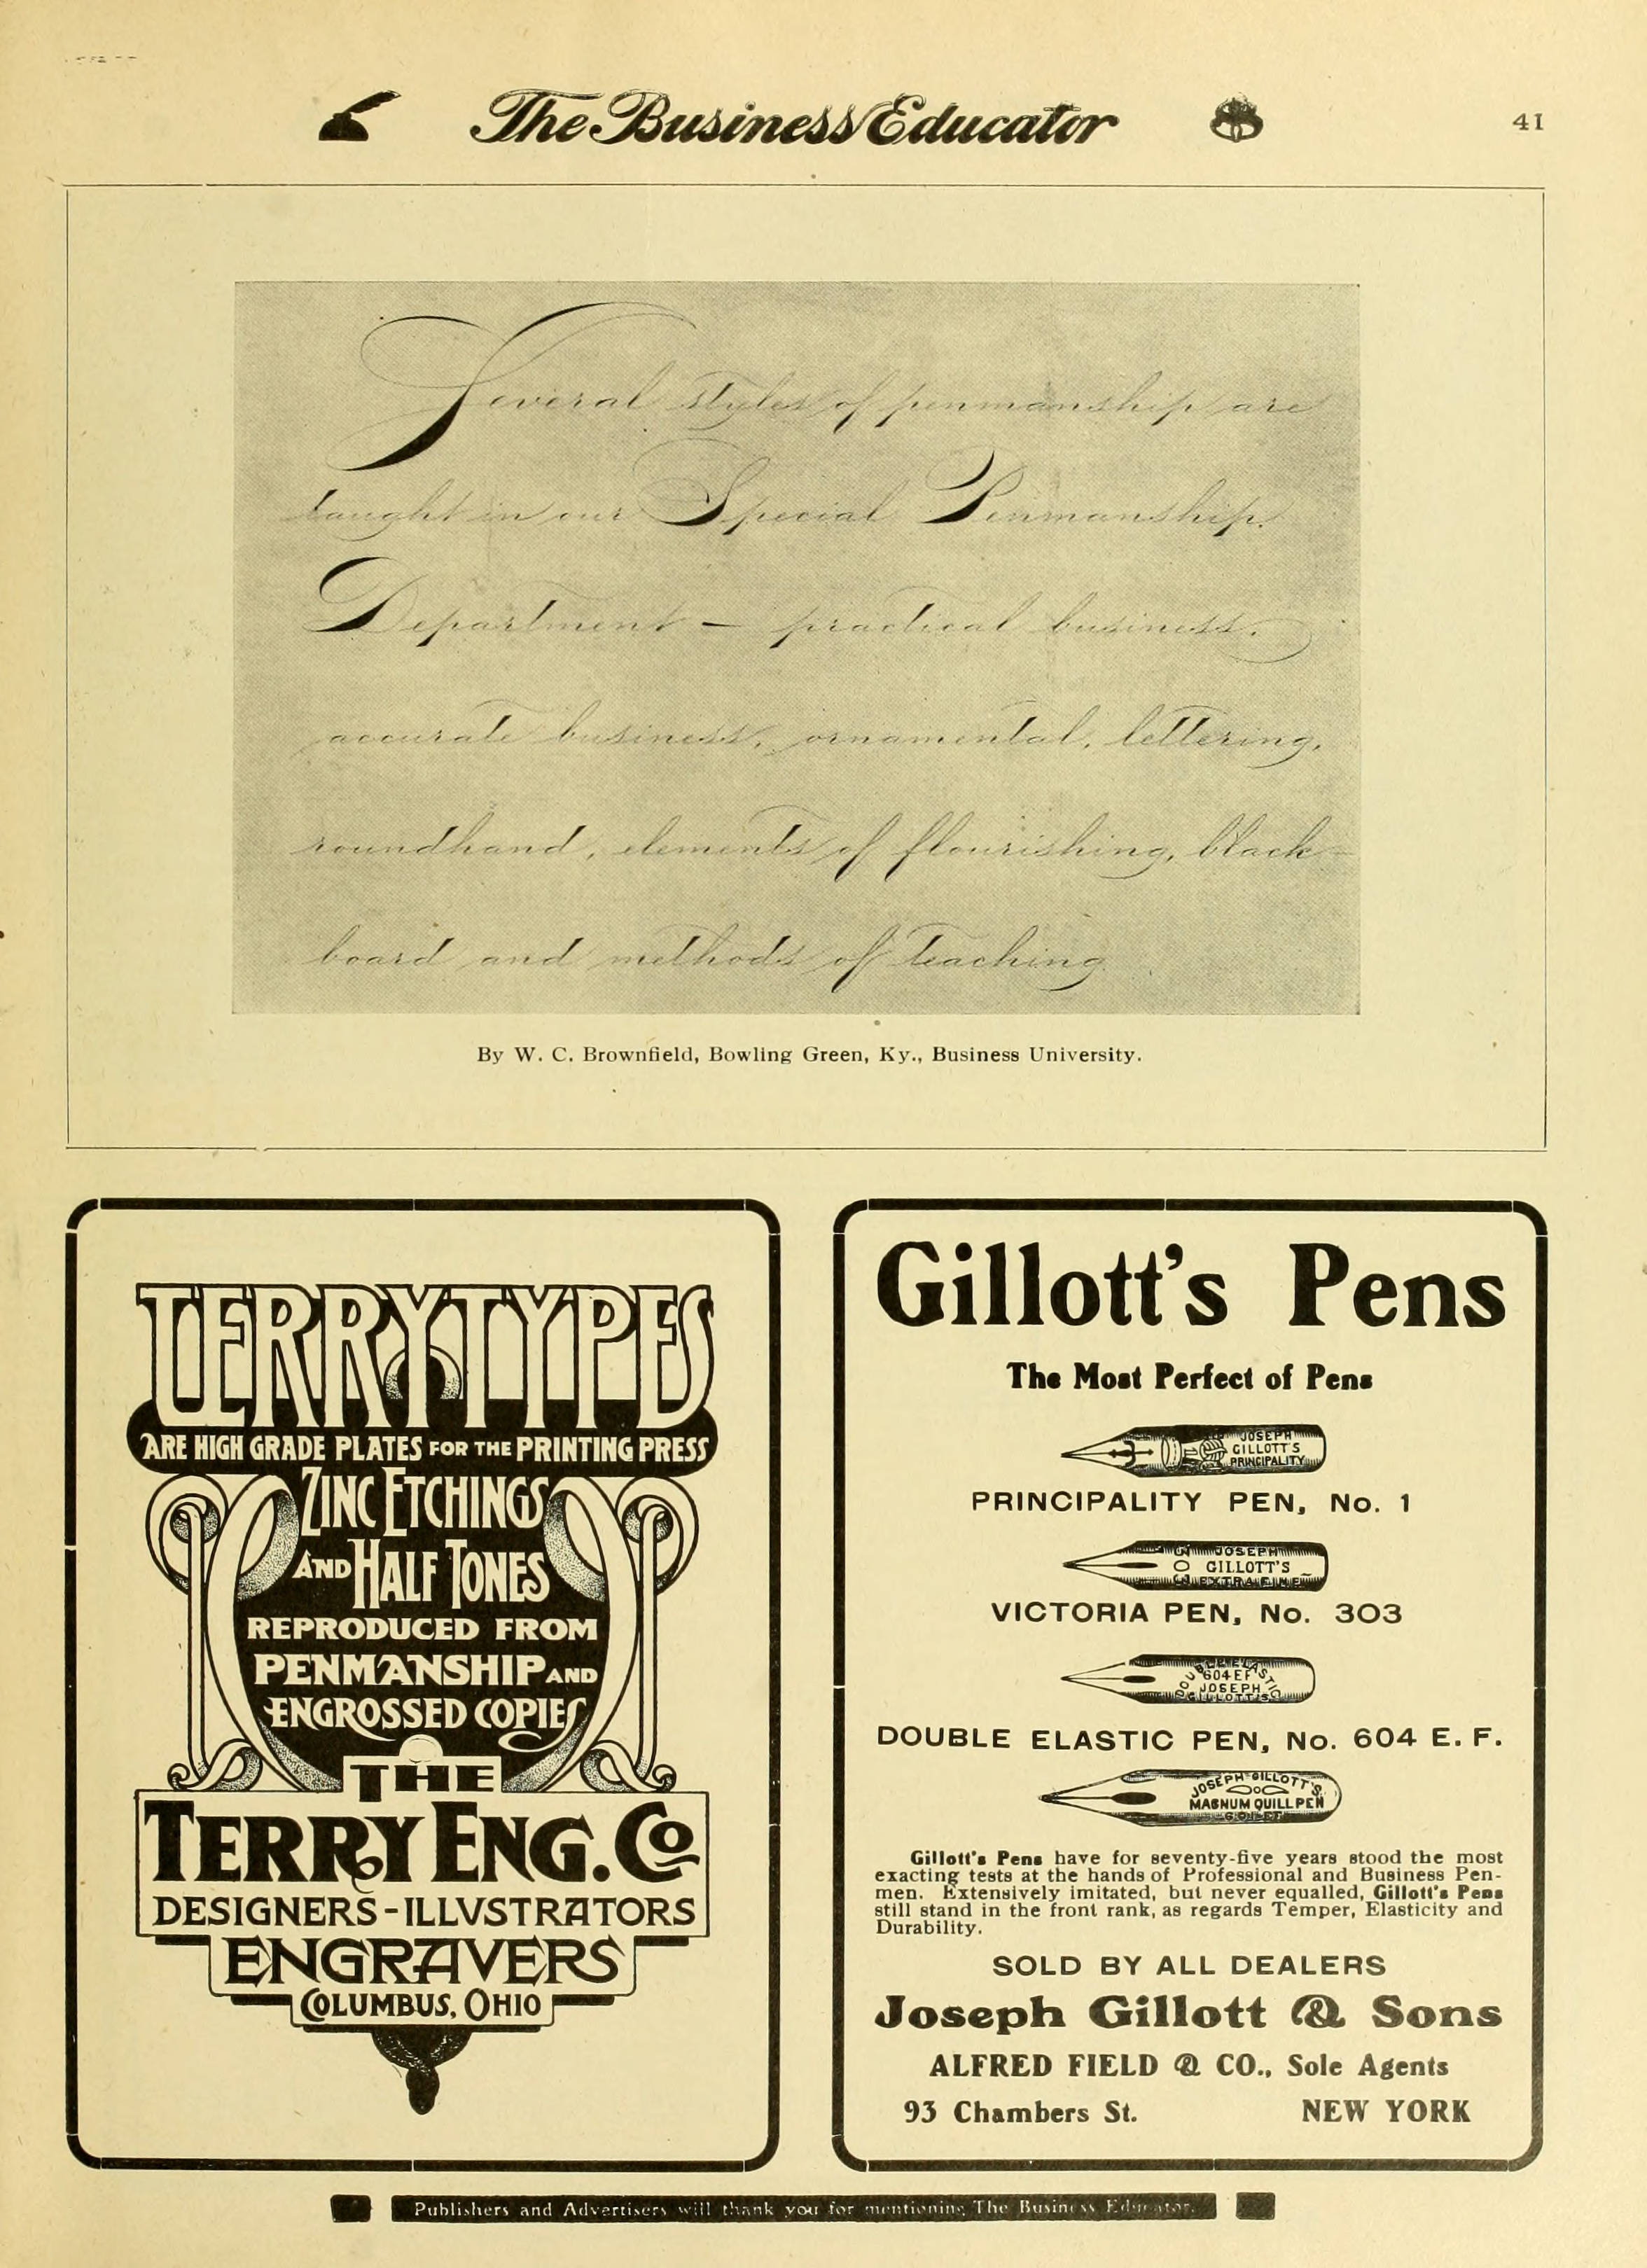 The Business Educator
41
Several styles of penmanship are
taught in our Special Penmanship
Department — practical business,
accurate business, ornamental, lettering,
roundhand, elements of flourishing, black-
board and methods of teaching
By W. C. Brownfield, Bowling Green, Ky., Business University.
TERRYTYPES
ARE HIGH GRADE PLATES FOR THE PRINTING PRESS
ZINC ETCHINGS
AND HALF TONES
REPRODUCED FROM
PENMANSHIP AND
ENGROSSED COPIES
THE
TERRY ENG. CO
DESIGNERS-ILLVSTRATORS
ENGRAVERS
COLUMBUS, OHIO
Gillott's Pens
The Most Perfect of Pens
JOSEPH
GILLOTT'S
PRINCIPALITY
PRINCIPALITY PEN, No. 1
303
JOSEPH
GILLOTT'S
EXTRA FINE
VICTORIA PEN, No. 303
DOUBLE ELASTIC
604 EF
JOSEPH
GILLOTT'S
DOUBLE ELASTIC PEN, No. 604 E. F.
JOSEPH GILLOTT'S
MAGNUM QUILL PEN
Gillott's Pens have for seventy-five years stood the most
exacting tests at the hands of Professional and Business Pen-
men. Extensively imitated, but never equalled, Gillott's Pens
still stand in the front rank, as regards Temper, Elasticity and
Durability.
SOLD BY ALL DEALERS
Joseph Gillott & Sons
ALFRED FIELD & CO., Sole Agents
93 Chambers St. NEW YORK
Publishers and Advertisers will thank you for mentioning The Business Educator.